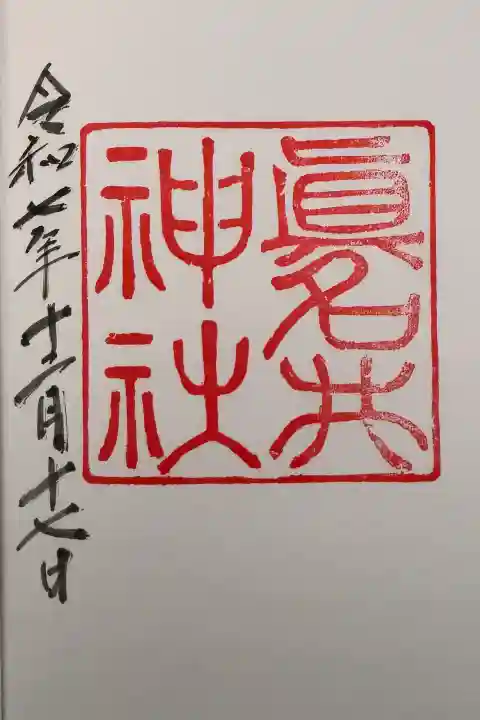 眞名井
神社
令和七年十一月十七日